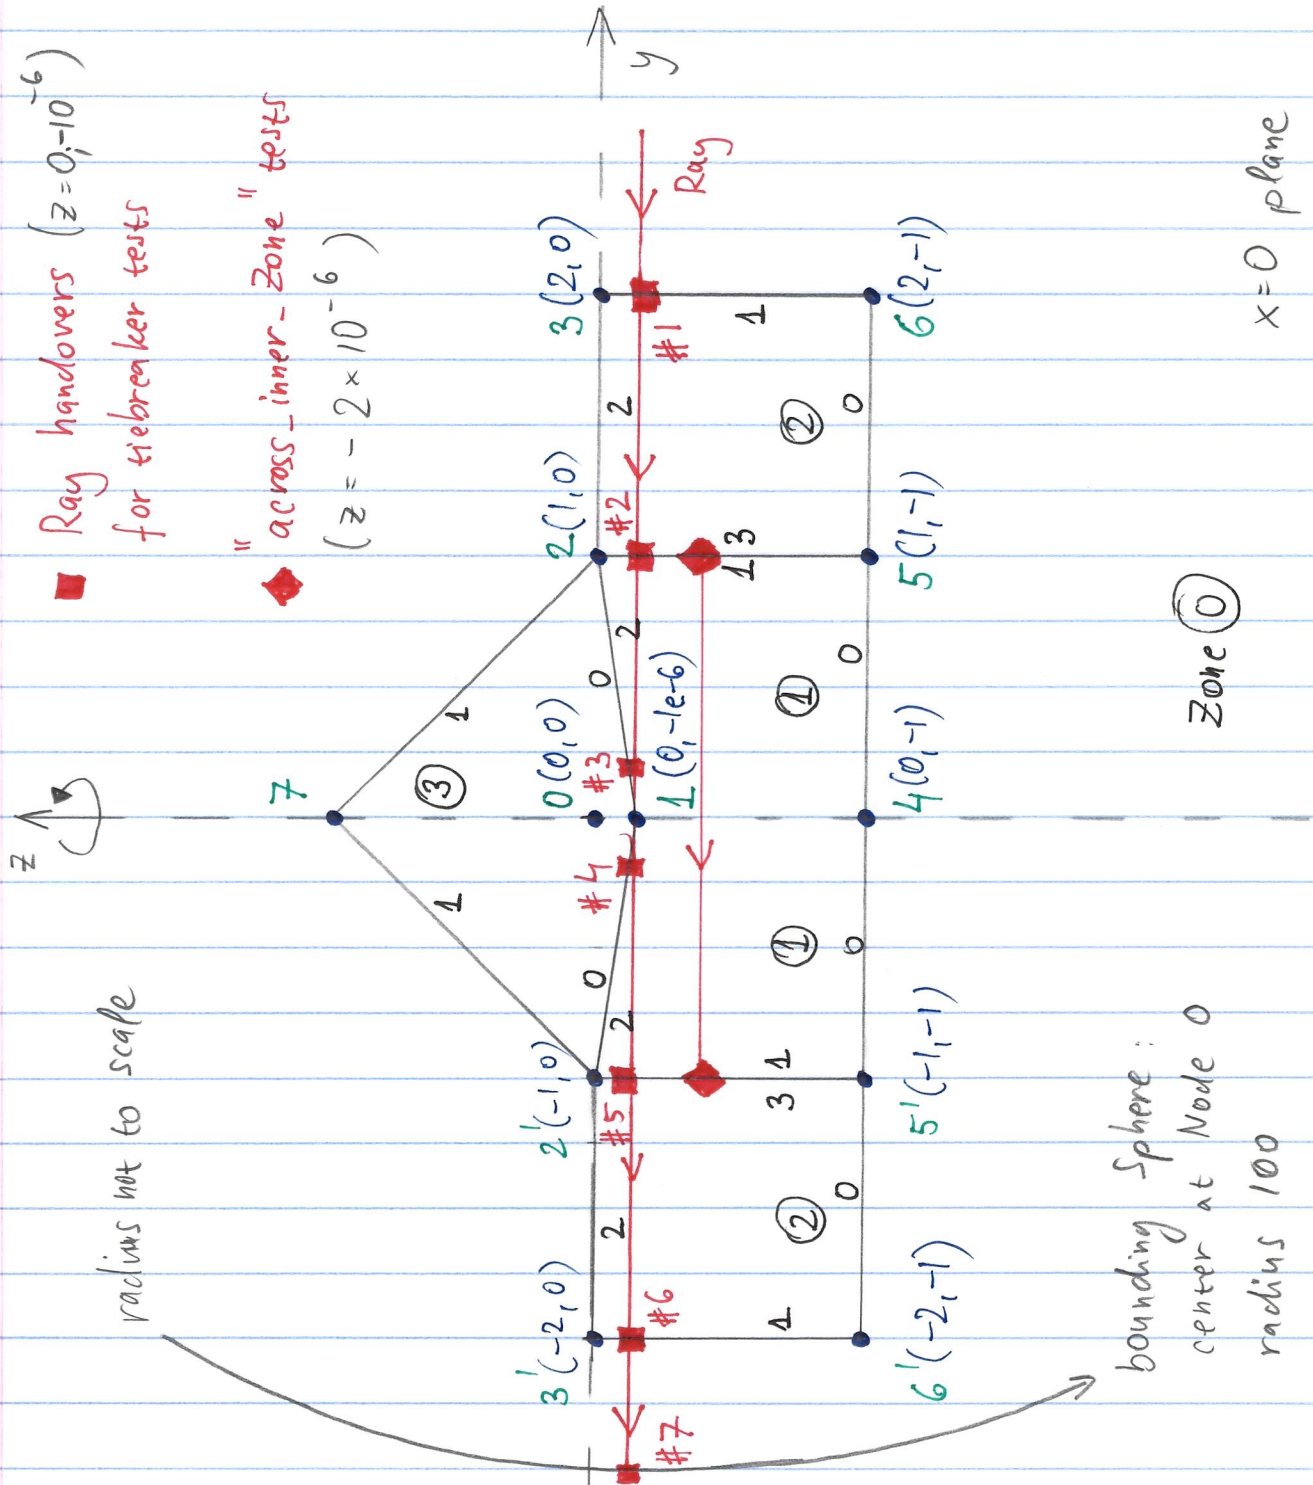 Ray handovers (z=0;-10⁻⁶)
for tiebreaker tests
"across_inner_Zone" tests
(z=-2×10⁻⁶)
radius not to scale
z
y
Ray
7
1
1
3
3'(-2,0)
2'(-1,0)
0(0,0)
2(1,0)
3(2,0)
2
0
0
2
2
2
#7
#6
#5
#4
#3
#2
#1
1(0,-1e-6)
1
3
1
1
3
1
2
1
1
2
0
0
0
0
6'(-2,-1)
5'(-1,-1)
4(0,-1)
5(1,-1)
6(2,-1)
bounding Sphere:
center at Node 0
radius 100
Zone 0
x=0 plane